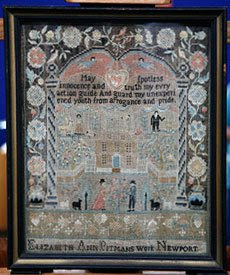 May spotless
innocence and truth my evry
action guide And guard my unexperi
ened youth from arrogance and pride
ELIZABETH ANN PITMANS WORK NEWPORT